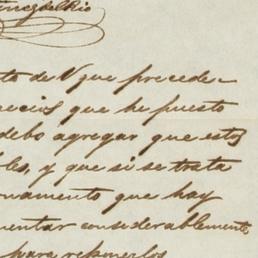 to de V que precede
recios que he puesto
debo agregar que estos
les, y que si se trata
rnamento que hay
mentar considerablemente
para reponerlos